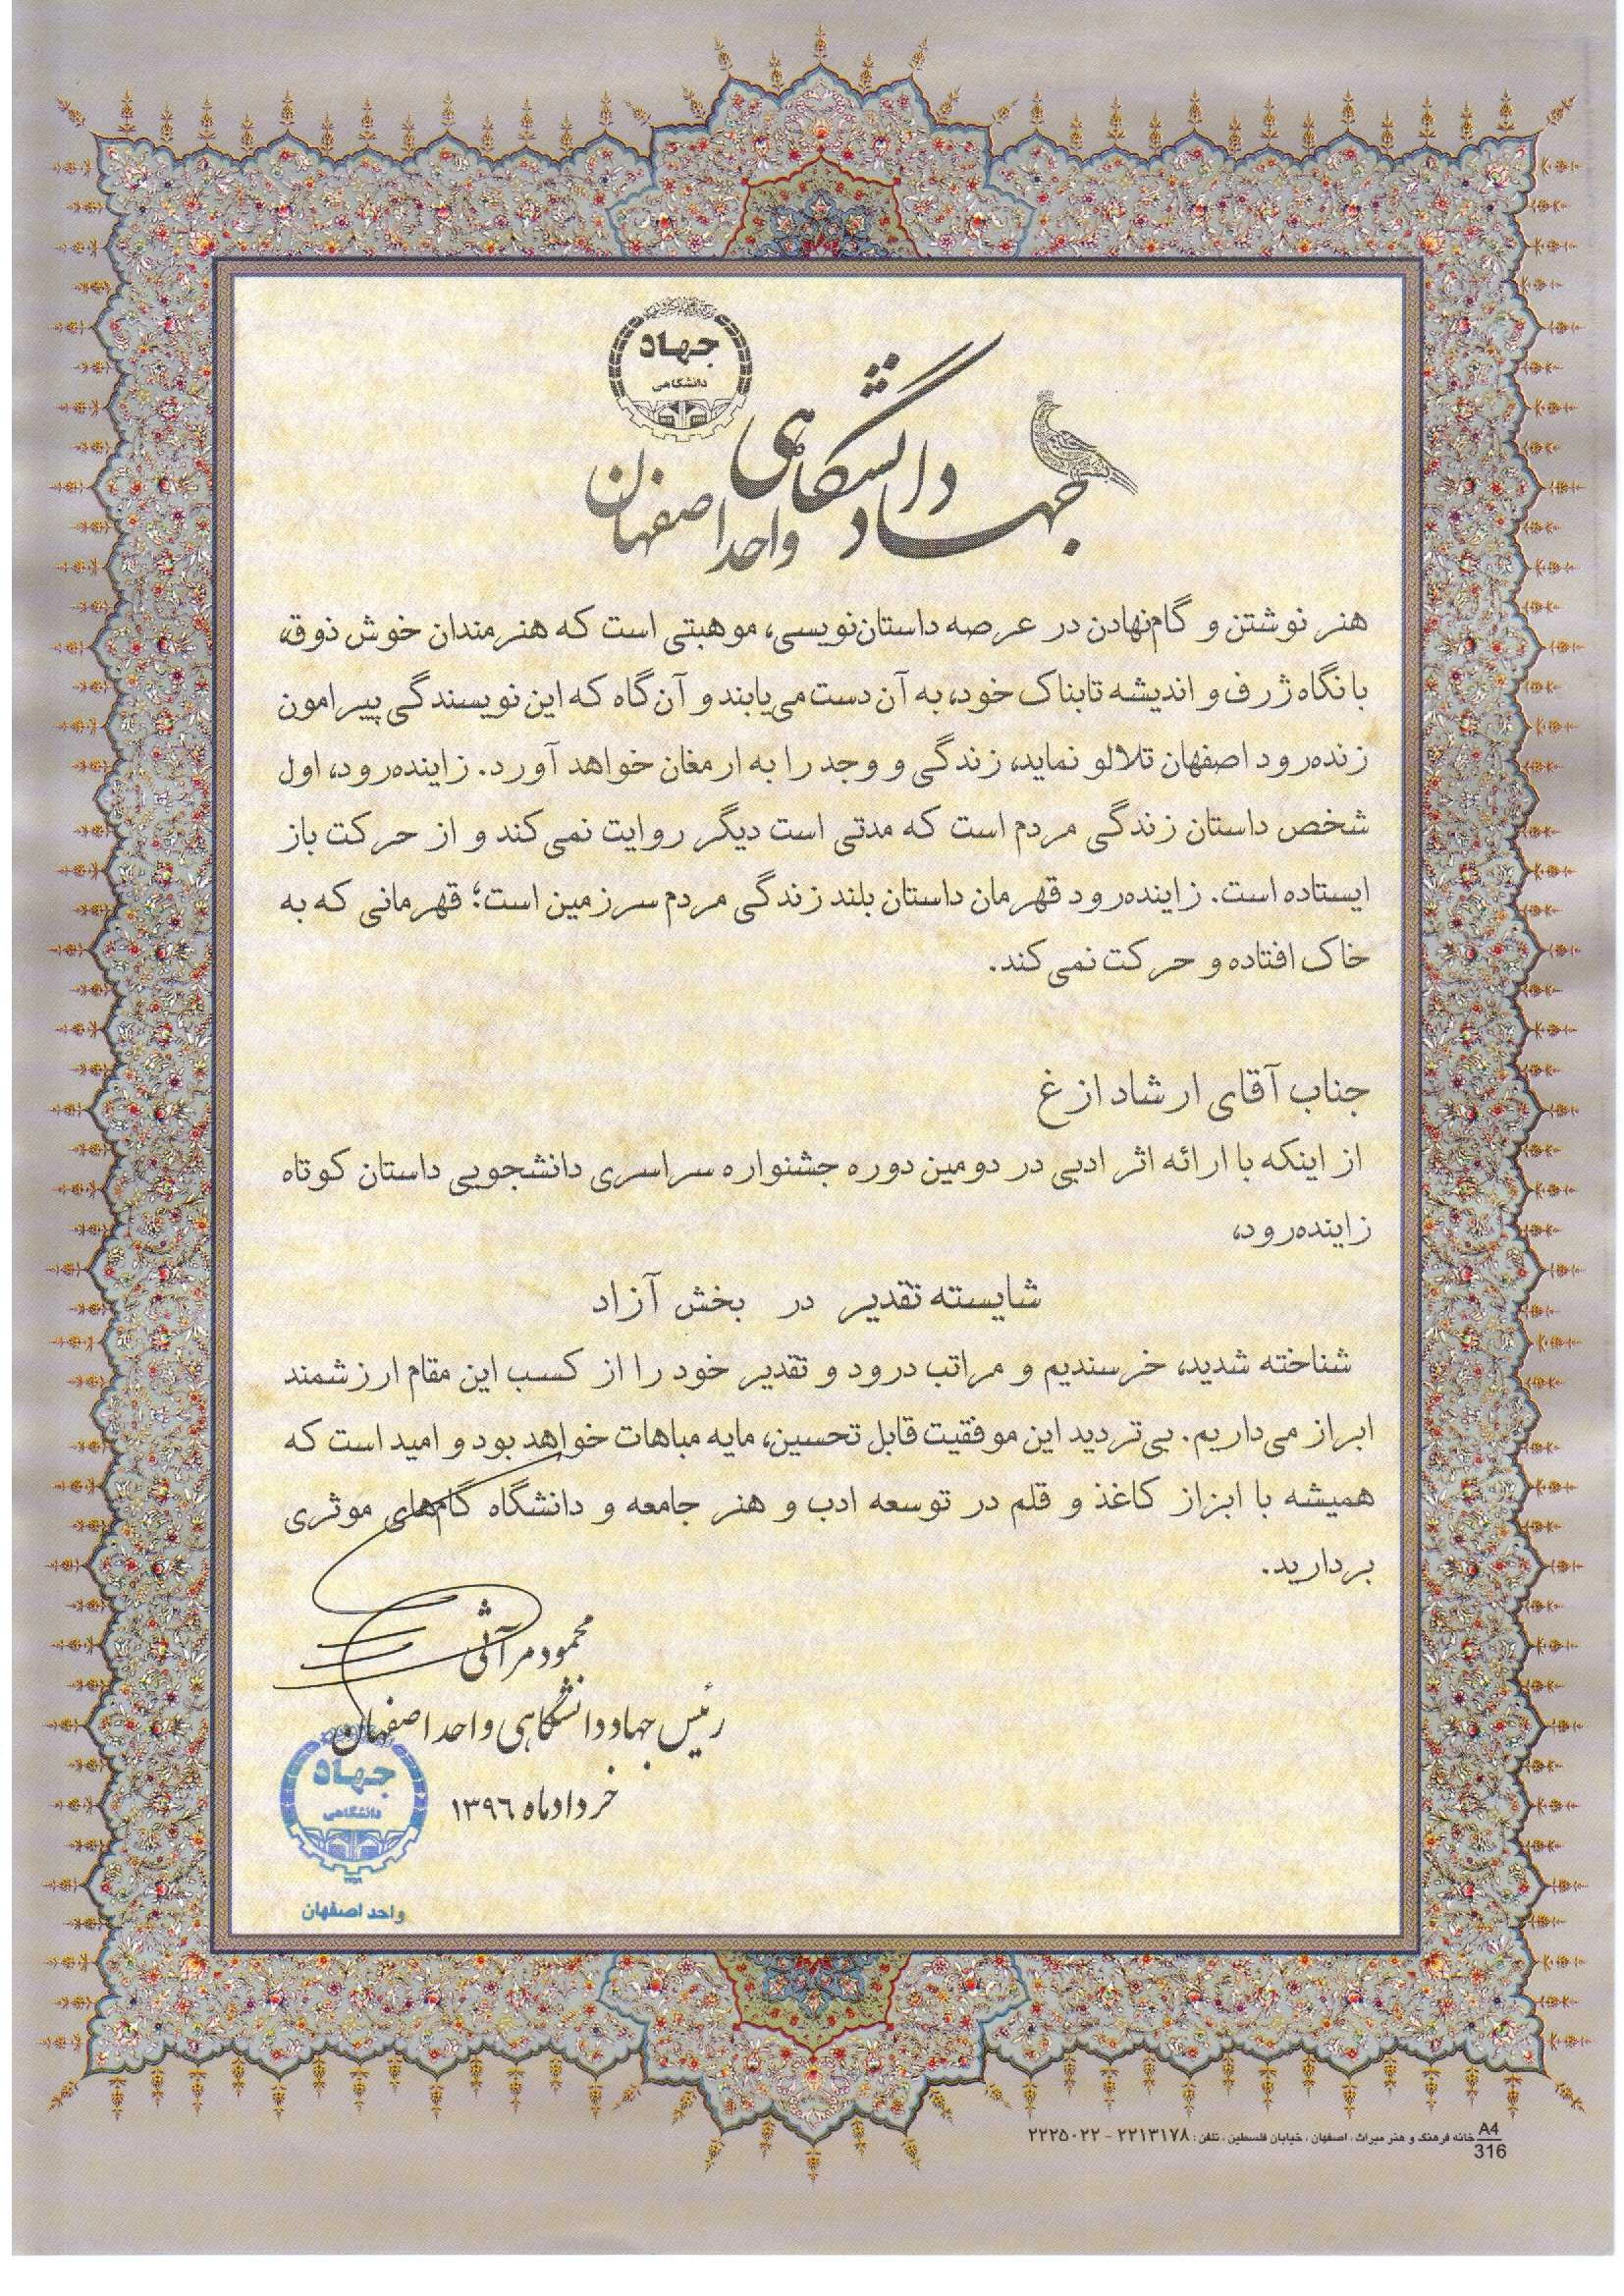 جهاد
دانشگاهی
جهاد دانشگاهی
واحد اصفهان
هنر نوشتن و گام‌نهادن در عرصه داستان‌نویسی، موهبتی است که هنرمندان خوش ذوق،
با نگاه ژرف و اندیشه تابناک خود، به آن دست می‌یابند و آن گاه که این نویسندگی پیرامون
زنده‌رود اصفهان تلالو نماید، زندگی و وجد را به ارمغان خواهد آورد. زاینده‌رود، اول
شخص داستان زندگی مردم است که مدتی است دیگر روایت نمی‌کند و از حرکت باز
ایستاده است. زاینده‌رود قهرمان داستان بلند زندگی مردم سرزمین است؛ قهرمانی که به
خاک افتاده و حرکت نمی‌کند.
جناب آقای ارشاد ازغ
از اینکه با ارائه اثر ادبی در دومین دوره جشنواره سراسری دانشجویی داستان کوتاه
زاینده‌رود،
شایسته تقدیر در بخش آزاد
شناخته شدید، خرسندیم و مراتب درود و تقدیر خود را از کسب این مقام ارزشمند
ابراز می‌داریم. بی‌تردید این موفقیت قابل تحسین، مایه مباهات خواهد بود و امید است که
همیشه با ابزار کاغذ و قلم در توسعه ادب و هنر جامعه و دانشگاه گام‌های موثری
بردارید.
محمود مرآثی
رئیس جهاد دانشگاهی واحد اصفهان
خرداد ماه ۱۳۹۶
جهاد
دانشگاهی
واحد اصفهان
A4
316
خانه فرهنگ و هنر میراث، اصفهان، خیابان فلسطین، تلفن: ۲۲۱۳۱۷۸ - ۲۲۲۵۰۲۲